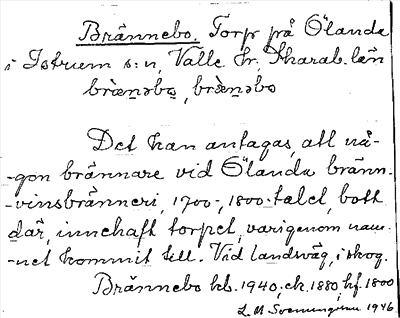 Brännebo. Torp på Ölanda
i Istrum s:n, Valle hr. Skarab. län
bræ̀nəbo̲, bræ̀nəbo
Det kan antagas, att nå-
-gon brännare vid Ölanda bränn-
-vinsbränneri, 1700-, 1800-talet, bott
där, innehaft torpet, varigenom nam-
-net kommit till. Vid landsväg, i skog.
Brännebo kb. 1940, ek. 1880, hf. 1800
L. M. 1946